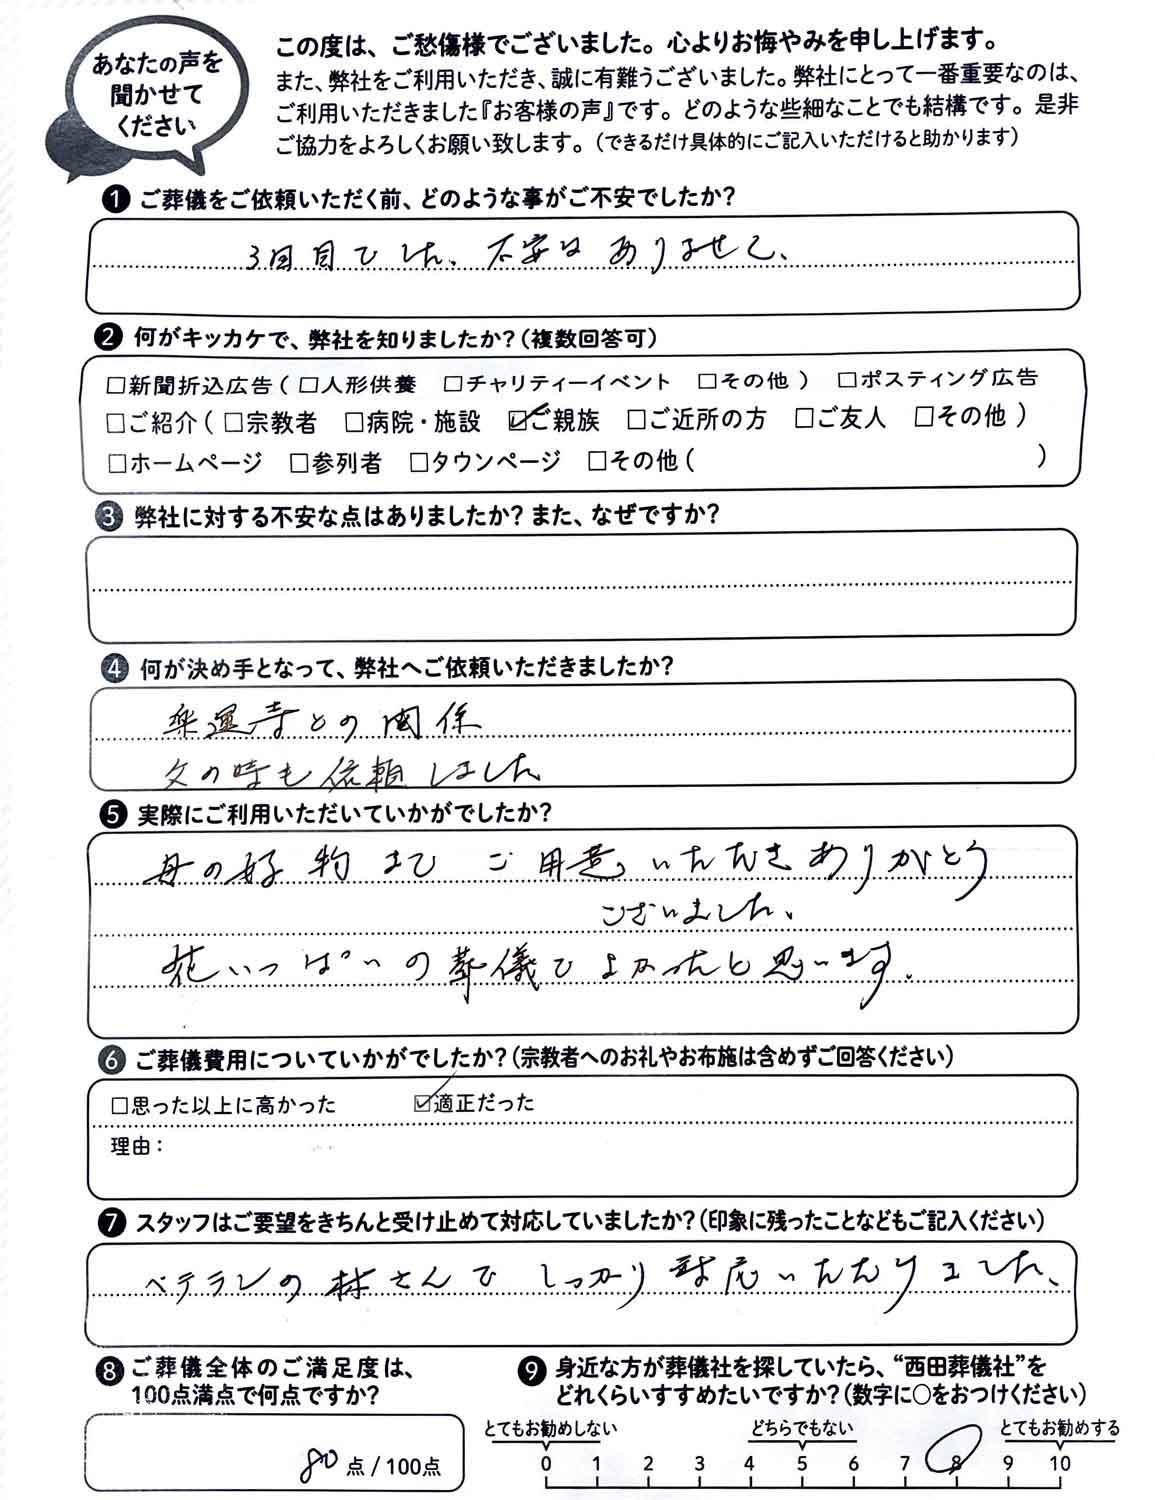 あなたの声を
聞かせて
ください
この度は、ご愁傷様でございました。心よりお悔やみを申し上げます。
また、弊社をご利用いただき、誠に有難うございました。弊社にとって一番重要なのは、
ご利用いただきました『お客様の声』です。どのような些細なことでも結構です。是非
ご協力をよろしくお願い致します。（できるだけ具体的にご記入いただけると助かります）
❶ ご葬儀をご依頼いただく前、どのような事がご不安でしたか？
3回目でした、不安はありませんで、
❷ 何がキッカケで、弊社を知りましたか？（複数回答可）
□新聞折込広告（ □人形供養 □チャリティーイベント □その他 ） □ポスティング広告
□ご紹介（ □宗教者 □病院・施設 ☑ご親族 □ご近所の方 □ご友人 □その他 ）
□ホームページ □参列者 □タウンページ □その他（ ）
❸ 弊社に対する不安な点はありましたか？また、なぜですか？
❹ 何が決め手となって、弊社へご依頼いただきましたか？
楽運寺との関係
父の時も依頼しました
❺ 実際にご利用いただいていかがでしたか？
母の好物までご用意いただきありがとう
ございました、
花いっぱいの葬儀でよかったと思います。
❻ ご葬儀費用についていかがでしたか？（宗教者へのお礼やお布施は含めずご回答ください）
□思った以上に高かった ☑適正だった
理由：
❼ スタッフはご要望をきちんと受け止めて対応していましたか？（印象に残ったことなどもご記入ください）
ベテランの林さんでしっかり対応いただけました、
❽ ご葬儀全体のご満足度は、
100点満点で何点ですか？
80 点 / 100点
❾ 身近な方が葬儀社を探していたら、“西田葬儀社”を
どれくらいすすめたいですか？（数字に○をおつけください）
とてもお勧めしない どちらでもない とてもお勧めする
0 1 2 3 4 5 6 7 8 9 10